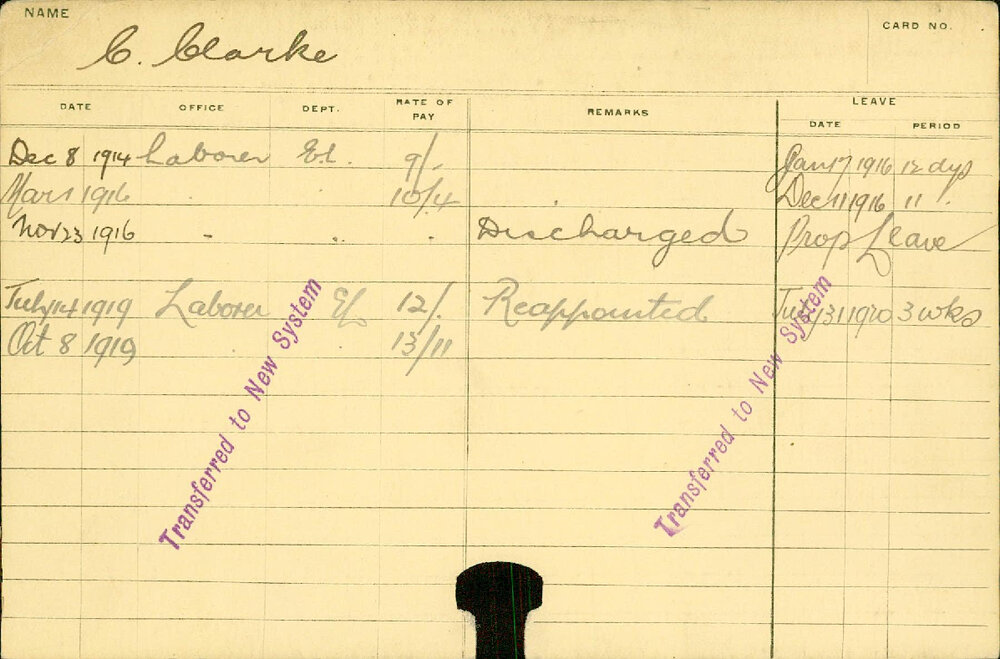 NAME
C. Clarke
CARD NO.
DATE OFFICE DEPT. RATE OF PAY REMARKS LEAVE
DATE PERIOD
Dec 8 1914 Laborer El. 9/- Jan 17 1916 12 dys
Mar 1 1916 10/4 Dec 11 1916 11 "
Nov 23 1916 Discharged Prop Leave
July 14 1919 Laborer El 12/- Reappointed July 31 1920 3 wks
Oct 8 1919 13/11
Transferred to New System
Transferred to New System